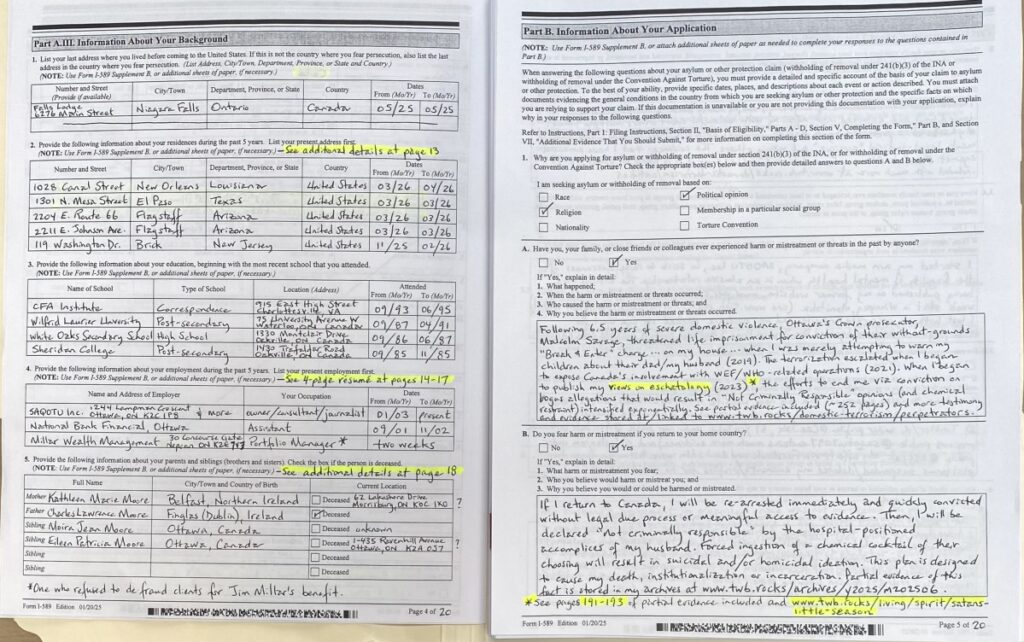 Part A.III. Information About Your Background
1. List your last address where you lived before coming to the United States. If this is not the country where you fear persecution, also list the last
address in the country where you fear persecution. (List Address, City/Town, Department, Province, or State and Country.)
(NOTE: Use Form I-589 Supplement B, or additional sheets of paper, if necessary.)
Number and Street
(Provide if available) City/Town Department, Province, or State Country Dates
From (Mo/Yr) To (Mo/Yr)
Falls Lodge
6276 Main Street Niagara Falls Ontario Canada 05/25 05/25
2. Provide the following information about your residences during the past 5 years. List your present address first.
(NOTE: Use Form I-589 Supplement B, or additional sheets of paper, if necessary.) -See additional details at page 13
Number and Street City/Town Department, Province, or State Country Dates
From (Mo/Yr) To (Mo/Yr)
1028 Canal Street New Orleans Louisiana United States 03/26 04/26
1301 N. Mesa Street El Paso Texas United States 03/26 03/26
2204 E. Route 66 Flagstaff Arizona United States 03/26 03/26
2211 E. Johnson Ave. Flagstaff Arizona United States 03/26 03/26
119 Washington Dr. Brick New Jersey United States 11/25 02/26
3. Provide the following information about your education, beginning with the most recent school that you attended.
(NOTE: Use Form I-589 Supplement B, or additional sheets of paper, if necessary.)
Name of School Type of School Location (Address) Attended
From (Mo/Yr) To (Mo/Yr)
CFA Institute Correspondence 915 East High Street
Charlottesville, VA 09/93 06/95
Wilfrid Laurier University Post-secondary 75 University Avenue W
Waterloo, ON Canada 09/87 04/91
White Oaks Secondary School High School 1330 Montclair Drive
Oakville, ON Canada 09/86 06/87
Sheridan College Post-secondary 1430 Trafalgar Road
Oakville, ON Canada 09/85 11/85
4. Provide the following information about your employment during the past 5 years. List your present employment first.
(NOTE: Use Form I-589 Supplement B, or additional sheets of paper, if necessary.) -See 4-page résumé at pages 14-17
Name and Address of Employer Your Occupation Dates
From (Mo/Yr) To (Mo/Yr)
SAQOTU Inc. 1244 Lampman Crescent
Ottawa, ON K2C 1P8 & more owner/consultant/journalist 01/03 present
National Bank Financial, Ottawa Assistant 09/01 11/02
Millar Wealth Management 30 Concourse Gate
Nepean ON K2E 7V7 Portfolio Manager* -two weeks-
5. Provide the following information about your parents and siblings (brothers and sisters). Check the box if the person is deceased.
(NOTE: Use Form I-589 Supplement B, or additional sheets of paper, if necessary.) -See additional details at page 18
Full Name City/Town and Country of Birth Current Location
Mother Kathleen Marie Moore Belfast, Northern Ireland Deceased 62 Lakeshore Drive
Morrisburg, ON K0C 1X0 ?
Father Charles Lawrence Moore Finglas (Dublin), Ireland Deceased
Sibling Moira Jean Moore Ottawa, Canada Deceased unknown
Sibling Eileen Patricia Moore Ottawa, Canada Deceased 1-435 Ravenhill Avenue
Ottawa, ON K2A 0J7 ?
Sibling Deceased
Sibling Deceased
*One who refused to defraud clients for Jim Millar's benefit.
Form I-589 Edition 01/20/25 Page 4 of 20
Part B. Information About Your Application
(NOTE: Use Form I-589 Supplement B, or attach additional sheets of paper as needed to complete your responses to the questions contained in
Part B.)
When answering the following questions about your asylum or other protection claim (withholding of removal under 241(b)(3) of the INA or
withholding of removal under the Convention Against Torture), you must provide a detailed and specific account of the basis of your claim to asylum
or other protection. To the best of your ability, provide specific dates, places, and descriptions about each event or action described. You must attach
documents evidencing the general conditions in the country from which you are seeking asylum or other protection and the specific facts on which
you are relying to support your claim. If this documentation is unavailable or you are not providing this documentation with your application, explain
why in your responses to the following questions.
Refer to Instructions, Part 1: Filing Instructions, Section II, "Basis of Eligibility," Parts A - D, Section V, Completing the Form," Part B, and Section
VII, "Additional Evidence That You Should Submit," for more information on completing this section of the form.
1. Why are you applying for asylum or withholding of removal under section 241(b)(3) of the INA, or for withholding of removal under the
Convention Against Torture? Check the appropriate box(es) below and then provide detailed answers to questions A and B below.
I am seeking asylum or withholding of removal based on:
Race Political opinion
Religion Membership in a particular social group
Nationality Torture Convention
A. Have you, your family, or close friends or colleagues ever experienced harm or mistreatment or threats in the past by anyone?
No Yes
If "Yes," explain in detail:
1. What happened;
2. When the harm or mistreatment or threats occurred;
3. Who caused the harm or mistreatment or threats; and
4. Why you believe the harm or mistreatment or threats occurred.
Following 6.5 years of severe domestic violence, Ottawa's Crown prosecutor,
Malcolm Savage, threatened life imprisonment for conviction of their without-grounds
"Break & Enter" charge... on my house... when I was merely attempting to warn my
children about their dad/my husband (2019). The terrorization escalated when I began
to expose Canada's involvement with WEF/WHO-related operations (2021). When I began
to publish my views on eschatology (2023)* the efforts to end me via conviction on
bogus allegations that would result in "Not Criminally Responsible" opinions (and chemical
restraint) intensified exponentially. See partial evidence included (~252 pages) and more testimony
and evidence stored at/linked to www.twb.rocks/domestic-terrorism/perpetrators.
B. Do you fear harm or mistreatment if you return to your home country?
No Yes
If "Yes," explain in detail:
1. What harm or mistreatment you fear;
2. Who you believe would harm or mistreat you; and
3. Why you believe you would or could be harmed or mistreated.
If I return to Canada, I will be re-arrested immediately and quickly convicted
without legal due process or meaningful access to evidence. Then, I will be
declared "not criminally responsible" by the hospital-positioned
accomplices of my husband. Forced ingestion of a chemical cocktail of their
choosing will result in suicidal and/or homicidal ideation. This plan is designed
to cause my death, institutionalization or incarceration. Partial evidence of this
fact is stored in my archives at www.twb.rocks/archives/y2025/m202506.
*See pages 191-193 of partial evidence included and www.twb.rocks/living/spirit/satans-
little-season
Form I-589 Edition 01/20/25 Page 5 of 20